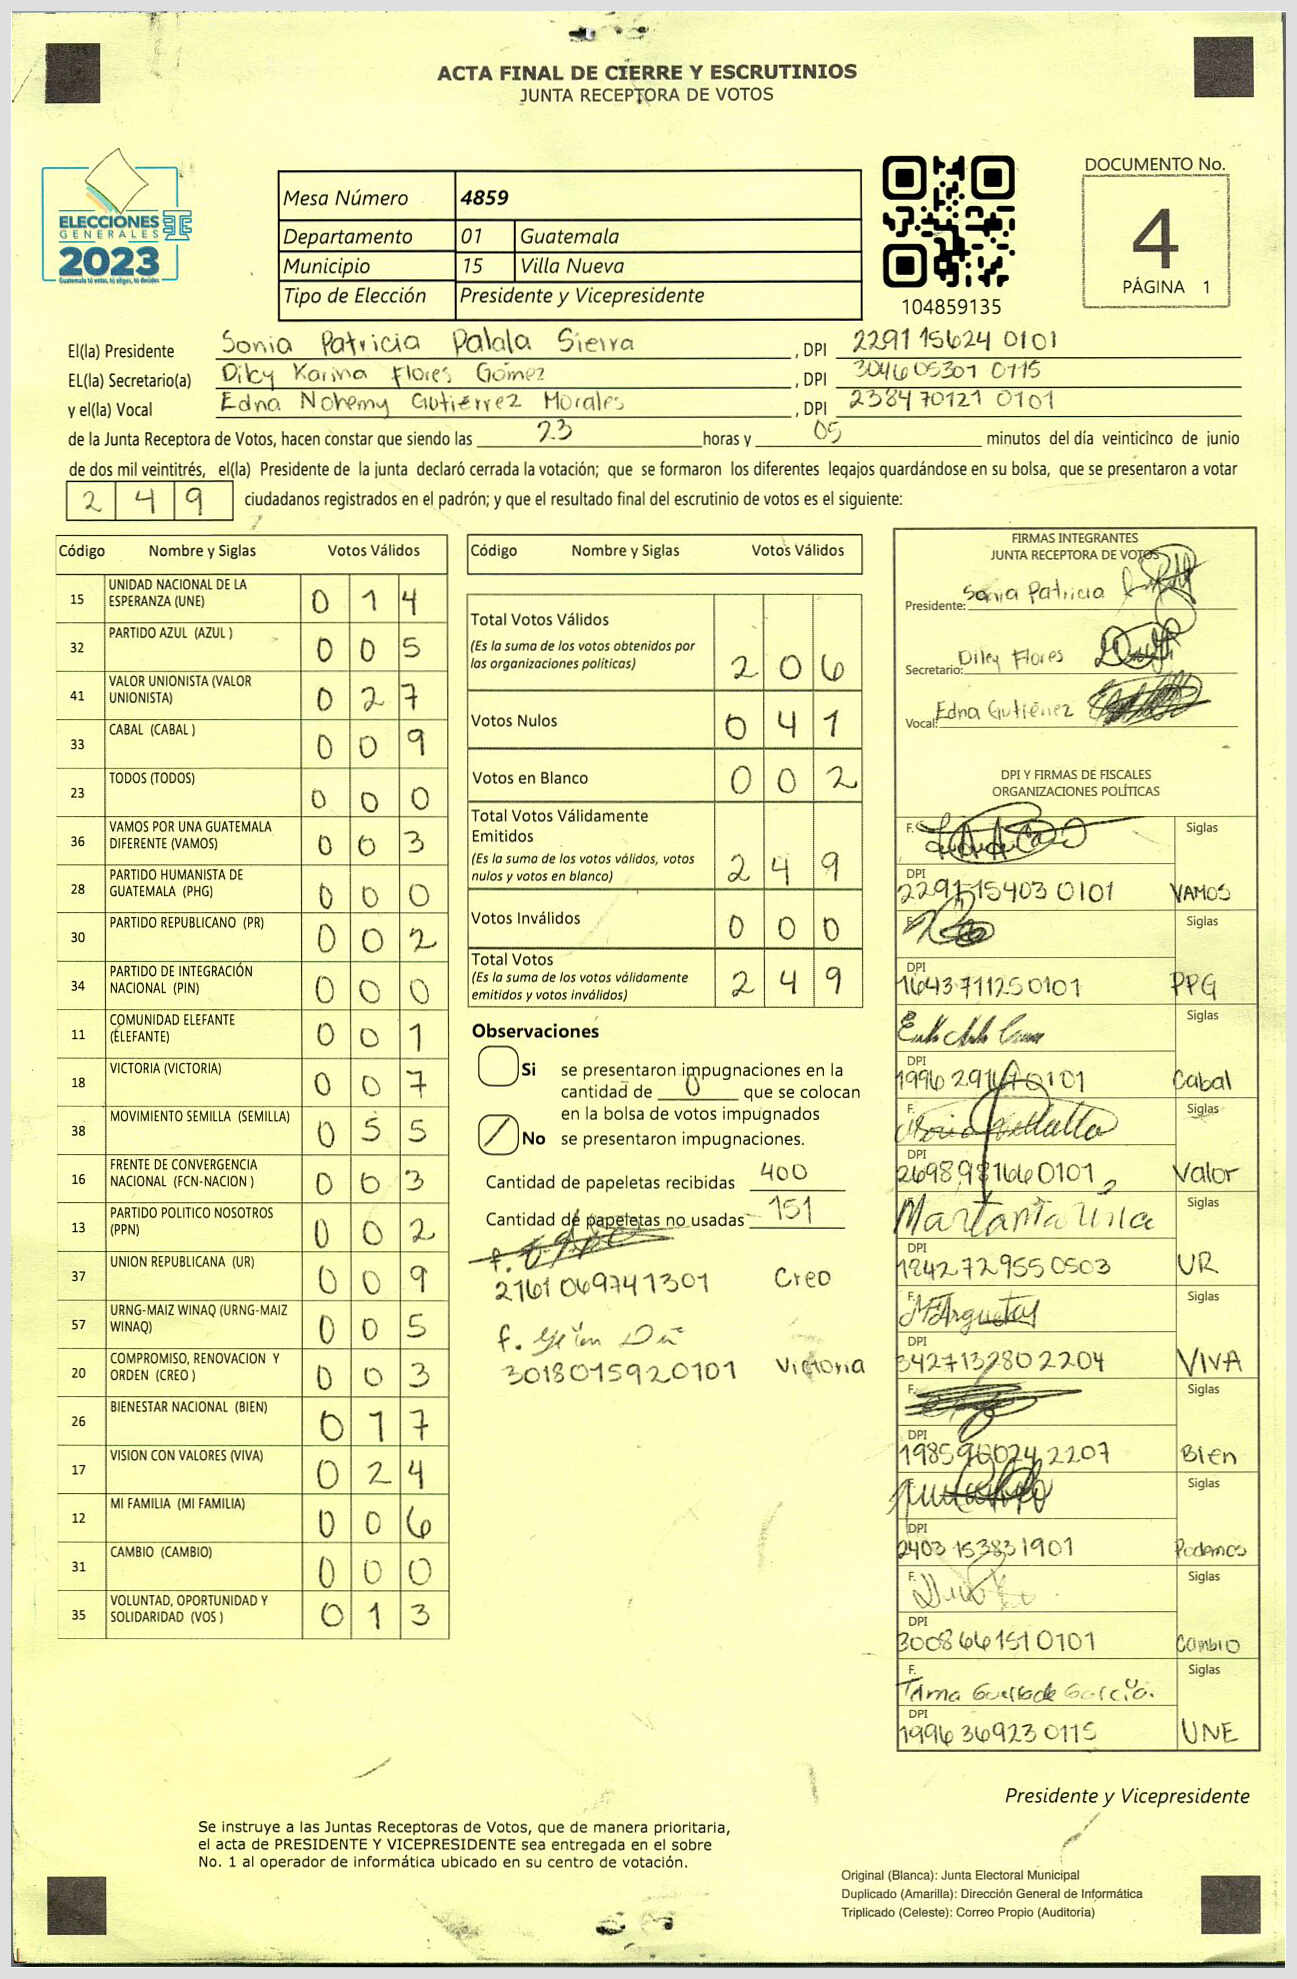 ACTA FINAL DE CIERRE Y ESCRUTINIOS
JUNTA RECEPTORA DE VOTOS
ELECCIONES
GENERALES
2023
Guatemala tú votas, tú eliges, tú decides
Mesa Número 4859
Departamento 01 Guatemala
Municipio 15 Villa Nueva
Tipo de Elección Presidente y Vicepresidente
104859135
DOCUMENTO No.
4
PÁGINA 1
El(la) Presidente Sonia Patricia Palala Sierra , DPI 2291 15624 0101
EL(la) Secretario(a) Dilcy Karina Flores Gómez , DPI 3046 05301 0115
y el(la) Vocal Edna Nohemy Gutiérrez Morales , DPI 2384 70121 0101
de la Junta Receptora de Votos, hacen constar que siendo las 23 horas y 05 minutos del día veinticinco de junio
de dos mil veintitrés, el(la) Presidente de la junta declaró cerrada la votación; que se formaron los diferentes legajos quardándose en su bolsa, que se presentaron a votar
2 4 9 ciudadanos registrados en el padrón; y que el resultado final del escrutinio de votos es el siguiente:
Código Nombre y Siglas Votos Válidos
15 UNIDAD NACIONAL DE LA ESPERANZA (UNE) 0 1 4
32 PARTIDO AZUL (AZUL ) 0 0 5
41 VALOR UNIONISTA (VALOR UNIONISTA) 0 2 7
33 CABAL (CABAL ) 0 0 9
23 TODOS (TODOS) 0 0 0
36 VAMOS POR UNA GUATEMALA DIFERENTE (VAMOS) 0 0 3
28 PARTIDO HUMANISTA DE GUATEMALA (PHG) 0 0 0
30 PARTIDO REPUBLICANO (PR) 0 0 2
34 PARTIDO DE INTEGRACIÓN NACIONAL (PIN) 0 0 0
11 COMUNIDAD ELEFANTE (ELEFANTE) 0 0 1
18 VICTORIA (VICTORIA) 0 0 7
38 MOVIMIENTO SEMILLA (SEMILLA) 0 5 5
16 FRENTE DE CONVERGENCIA NACIONAL (FCN-NACION ) 0 0 3
13 PARTIDO POLITICO NOSOTROS (PPN) 0 0 2
37 UNION REPUBLICANA (UR) 0 0 9
57 URNG-MAIZ WINAQ (URNG-MAIZ WINAQ) 0 0 5
20 COMPROMISO, RENOVACION Y ORDEN (CREO ) 0 0 3
26 BIENESTAR NACIONAL (BIEN) 0 1 7
17 VISION CON VALORES (VIVA) 0 2 4
12 MI FAMILIA (MI FAMILIA) 0 0 6
31 CAMBIO (CAMBIO) 0 0 0
35 VOLUNTAD, OPORTUNIDAD Y SOLIDARIDAD (VOS ) 0 1 3
Código Nombre y Siglas Votos Válidos
Total Votos Válidos
(Es la suma de los votos obtenidos por
las organizaciones políticas) 2 0 6
Votos Nulos 0 4 1
Votos en Blanco 0 0 2
Total Votos Válidamente
Emitidos
(Es la suma de los votos válidos, votos
nulos y votos en blanco) 2 4 9
Votos Inválidos 0 0 0
Total Votos
(Es la suma de los votos válidamente
emitidos y votos inválidos) 2 4 9
Observaciones
Si se presentaron impugnaciones en la
cantidad de 0 que se colocan
en la bolsa de votos impugnados
No se presentaron impugnaciones.
Cantidad de papeletas recibidas 400
Cantidad de papeletas no usadas 151
f.
2161 06974 1301 Creo
f.
3018015920101 Victoria
FIRMAS INTEGRANTES
JUNTA RECEPTORA DE VOTOS
Presidente: Sonia Patricia
Secretario: Dilcy Flores
Vocal: Edna Gutiérrez
DPI Y FIRMAS DE FISCALES
ORGANIZACIONES POLÍTICAS
F. Siglas
DPI
2291 15403 0101 VAMOS
F. Siglas
DPI
1643711250101 PPG
Siglas
DPI
0101 Cabal
F. Siglas
DPI
2698981660101 Valor
Siglas
DPI
1842729550503 UR
F. Siglas
DPI
3427132802204 VIVA
F. Siglas
DPI
2207 Bien
Siglas
DPI
2403 15383 1901 Podemos
F. Siglas
DPI
3008661510101 Cambio
F. Siglas
DPI
1996 36923 0115 UNE
Presidente y Vicepresidente
Se instruye a las Juntas Receptoras de Votos, que de manera prioritaria,
el acta de PRESIDENTE Y VICEPRESIDENTE sea entregada en el sobre
No. 1 al operador de informática ubicado en su centro de votación.
Original (Blanca): Junta Electoral Municipal
Duplicado (Amarilla): Dirección General de Informática
Triplicado (Celeste): Correo Propio (Auditoría)